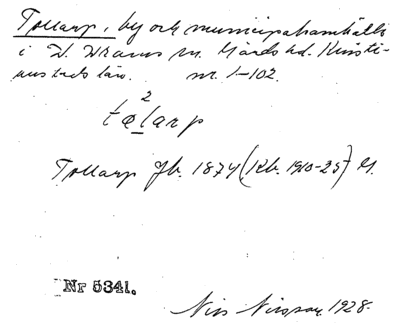 Tollarp, by och municipalsamhälle
i V. Vrams sn. Gärds hd. Kristi-
anstads län. nr. 1-102.
2
tålarp
Tollarp Jb. 1874 (Kb. 1910-25) G.
Nr 5341.
Nils Nilsson, 1928.